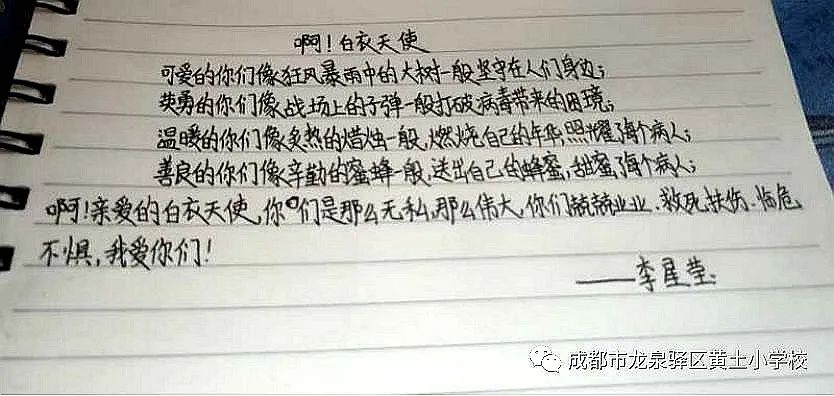 啊！白衣天使
可爱的你们像狂风暴雨中的大树一般坚守在人们身边；
英勇的你们像战场上的子弹一般打破病毒带来的困境；
温暖的你们像炙热的蜡烛一般，燃烧自己的年华，照耀了每个病人；
善良的你们像辛勤的蜜蜂一般，送出自己的蜂蜜，甜蜜了每个病人；
啊！亲爱的白衣天使，你们是那么无私，那么伟大，你们兢兢业业、救死扶伤、临危
不惧，我爱你们！
——李星莹
成都市龙泉驿区黄土小学校